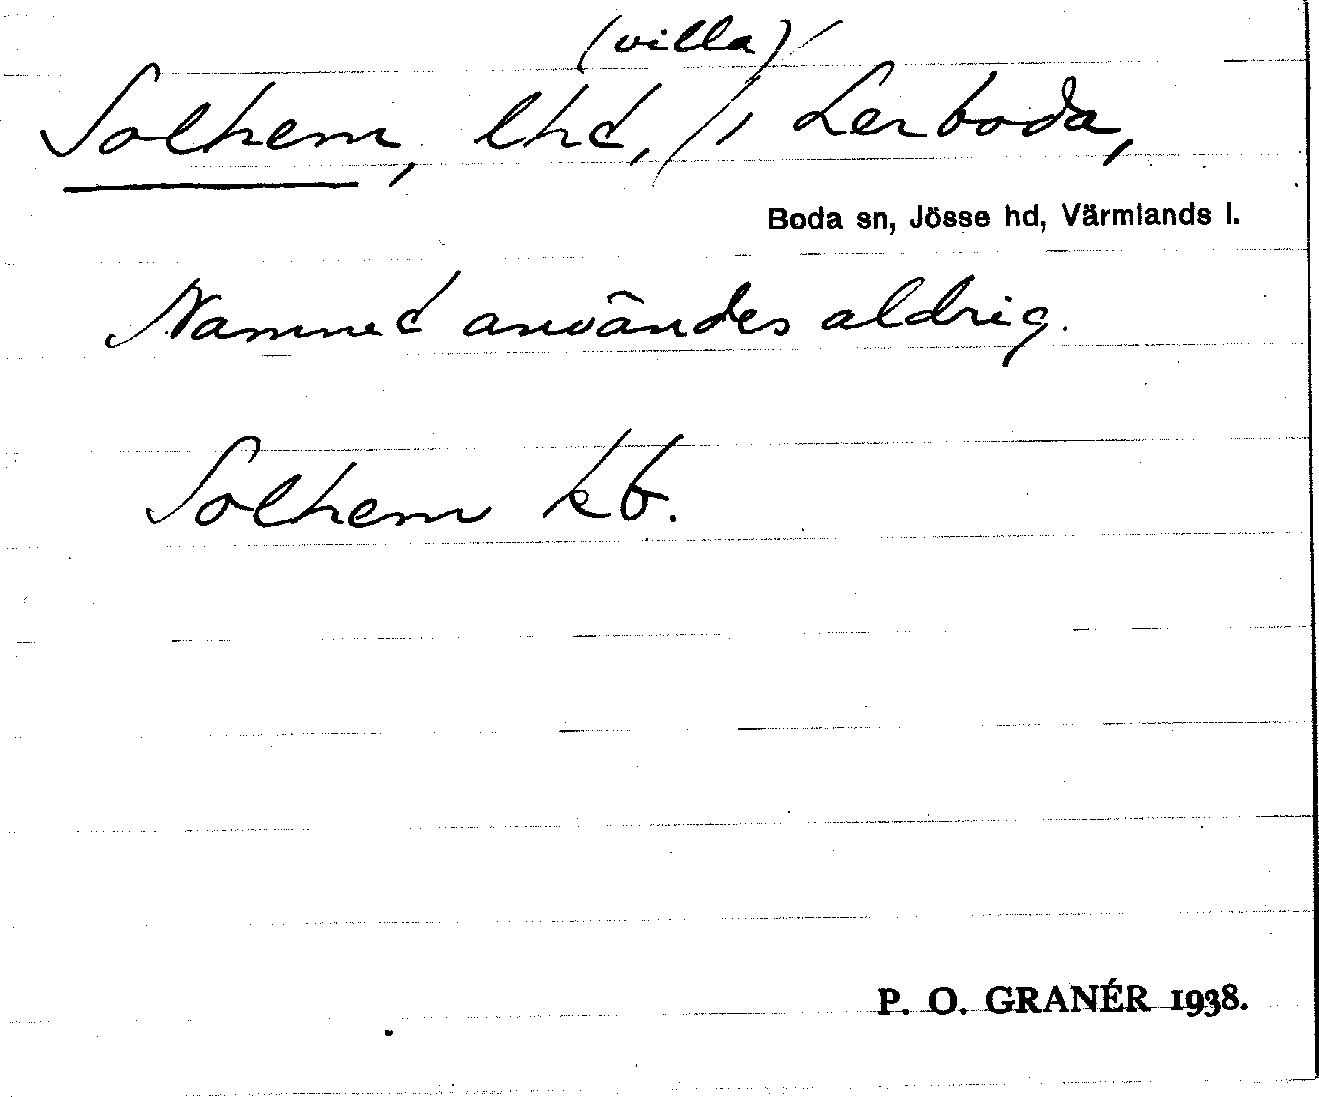 (villa)
Solhem, lhd, i Lerboda,
Boda sn, Jösse hd, Värmlands l.
Namnet användes aldrig.
Solhem kb.
P. O. GRANÉR 1938.